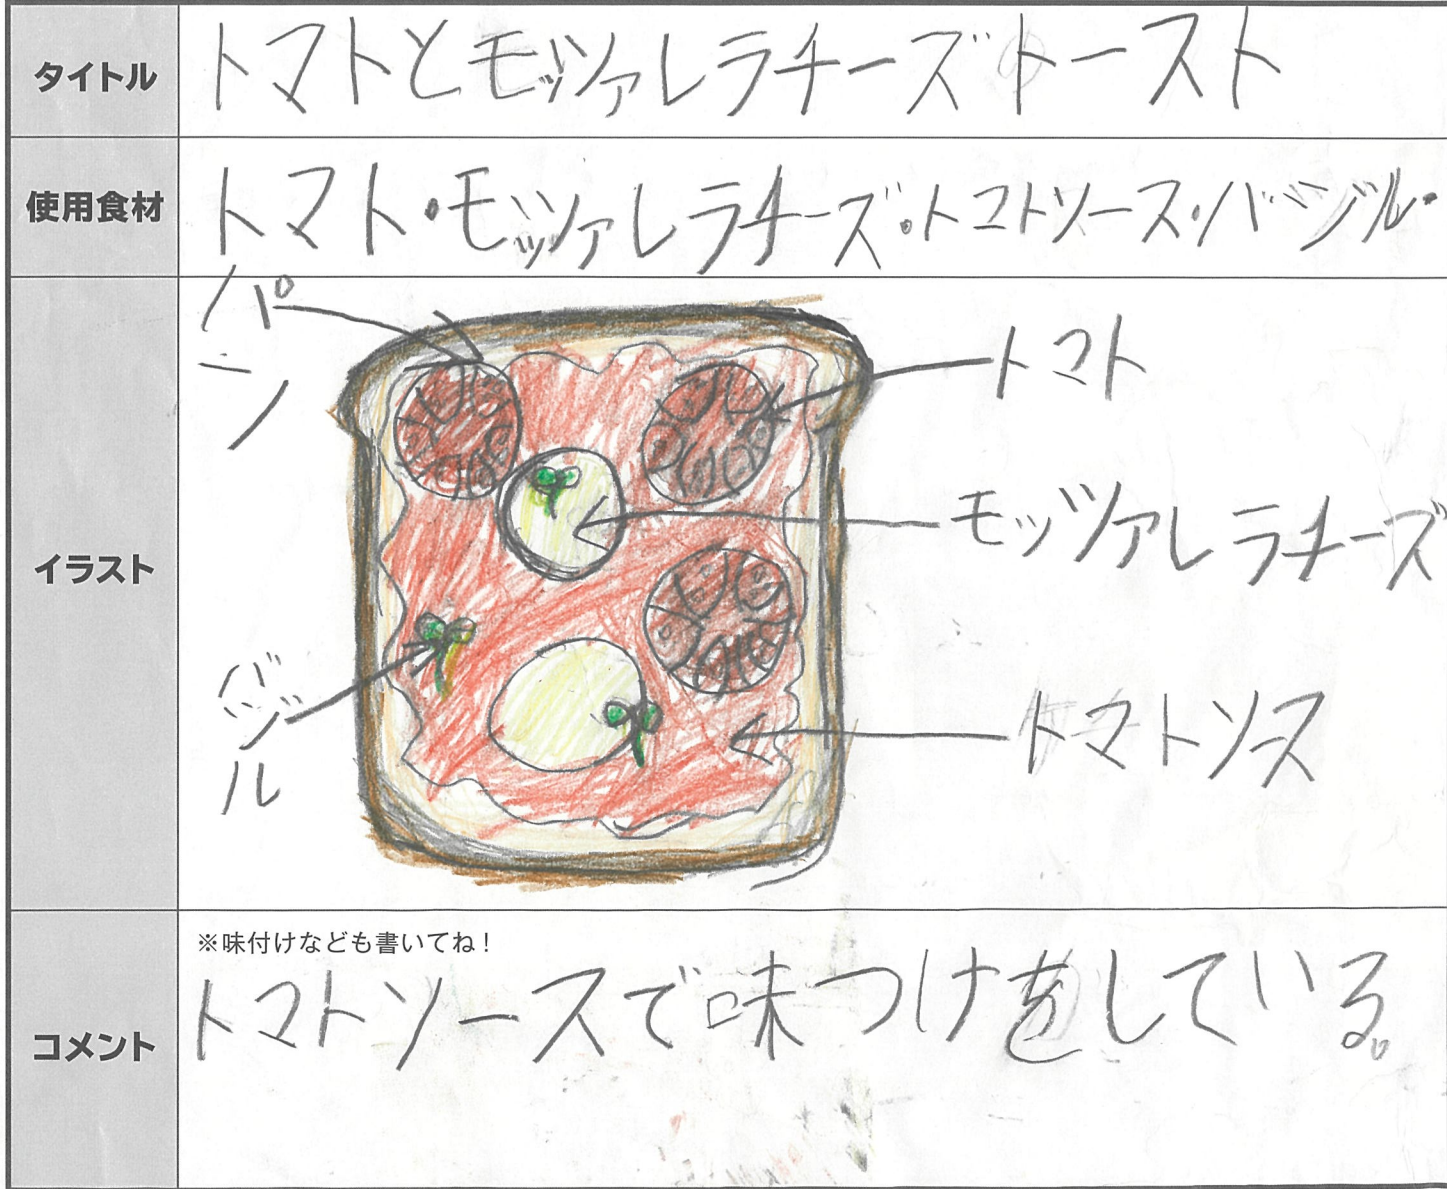 タイトル
トマトとモッツァレラチーズトースト
使用食材
トマト・モッツァレラチーズ・トマトソース・バジル・
パン
イラスト
トマト
モッツァレラチーズ
バジル
トマトソース
※味付けなども書いてね！
コメント
トマトソースで味つけをしている。